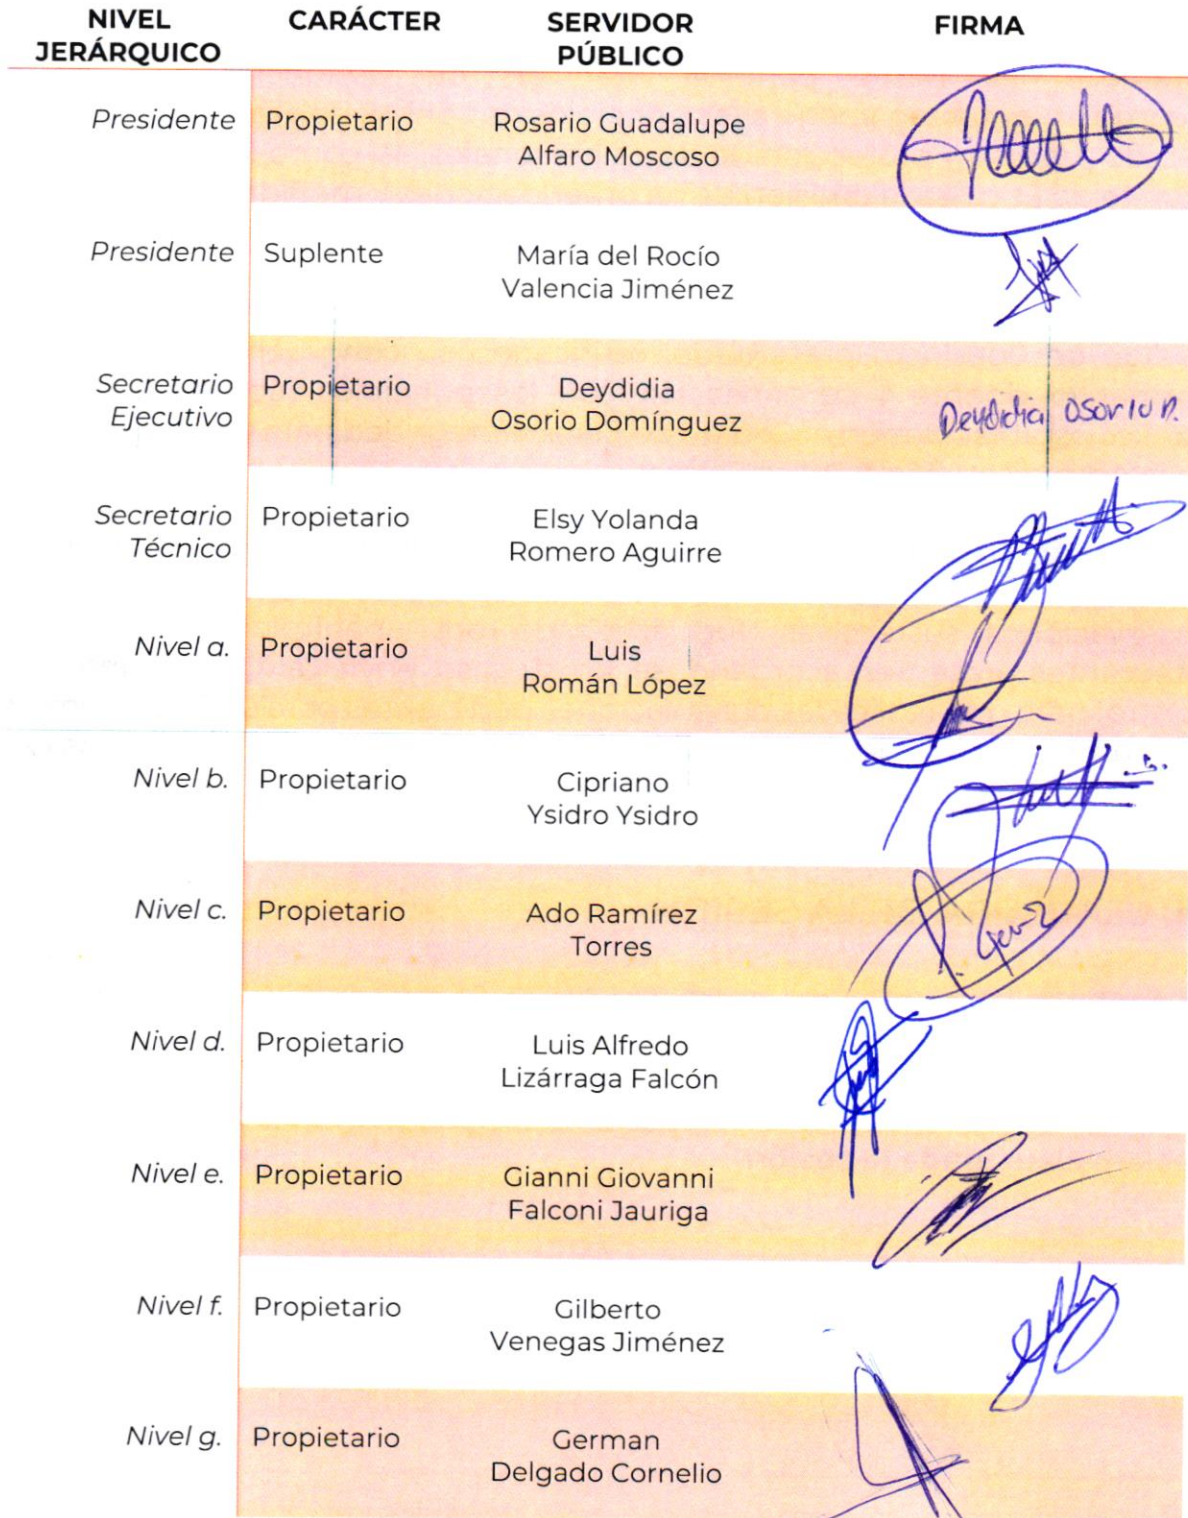 NIVEL JERÁRQUICO CARÁCTER SERVIDOR PÚBLICO FIRMA
Presidente Propietario Rosario Guadalupe
Alfaro Moscoso
Presidente Suplente María del Rocío
Valencia Jiménez
Secretario Propietario Deydidia
Ejecutivo Osorio Domínguez Deydidia Osorio D.
Secretario Propietario Elsy Yolanda
Técnico Romero Aguirre
Nivel a. Propietario Luis
Román López
Nivel b. Propietario Cipriano
Ysidro Ysidro
Nivel c. Propietario Ado Ramírez
Torres
Nivel d. Propietario Luis Alfredo
Lizárraga Falcón
Nivel e. Propietario Gianni Giovanni
Falconi Jauriga
Nivel f. Propietario Gilberto
Venegas Jiménez
Nivel g. Propietario German
Delgado Cornelio